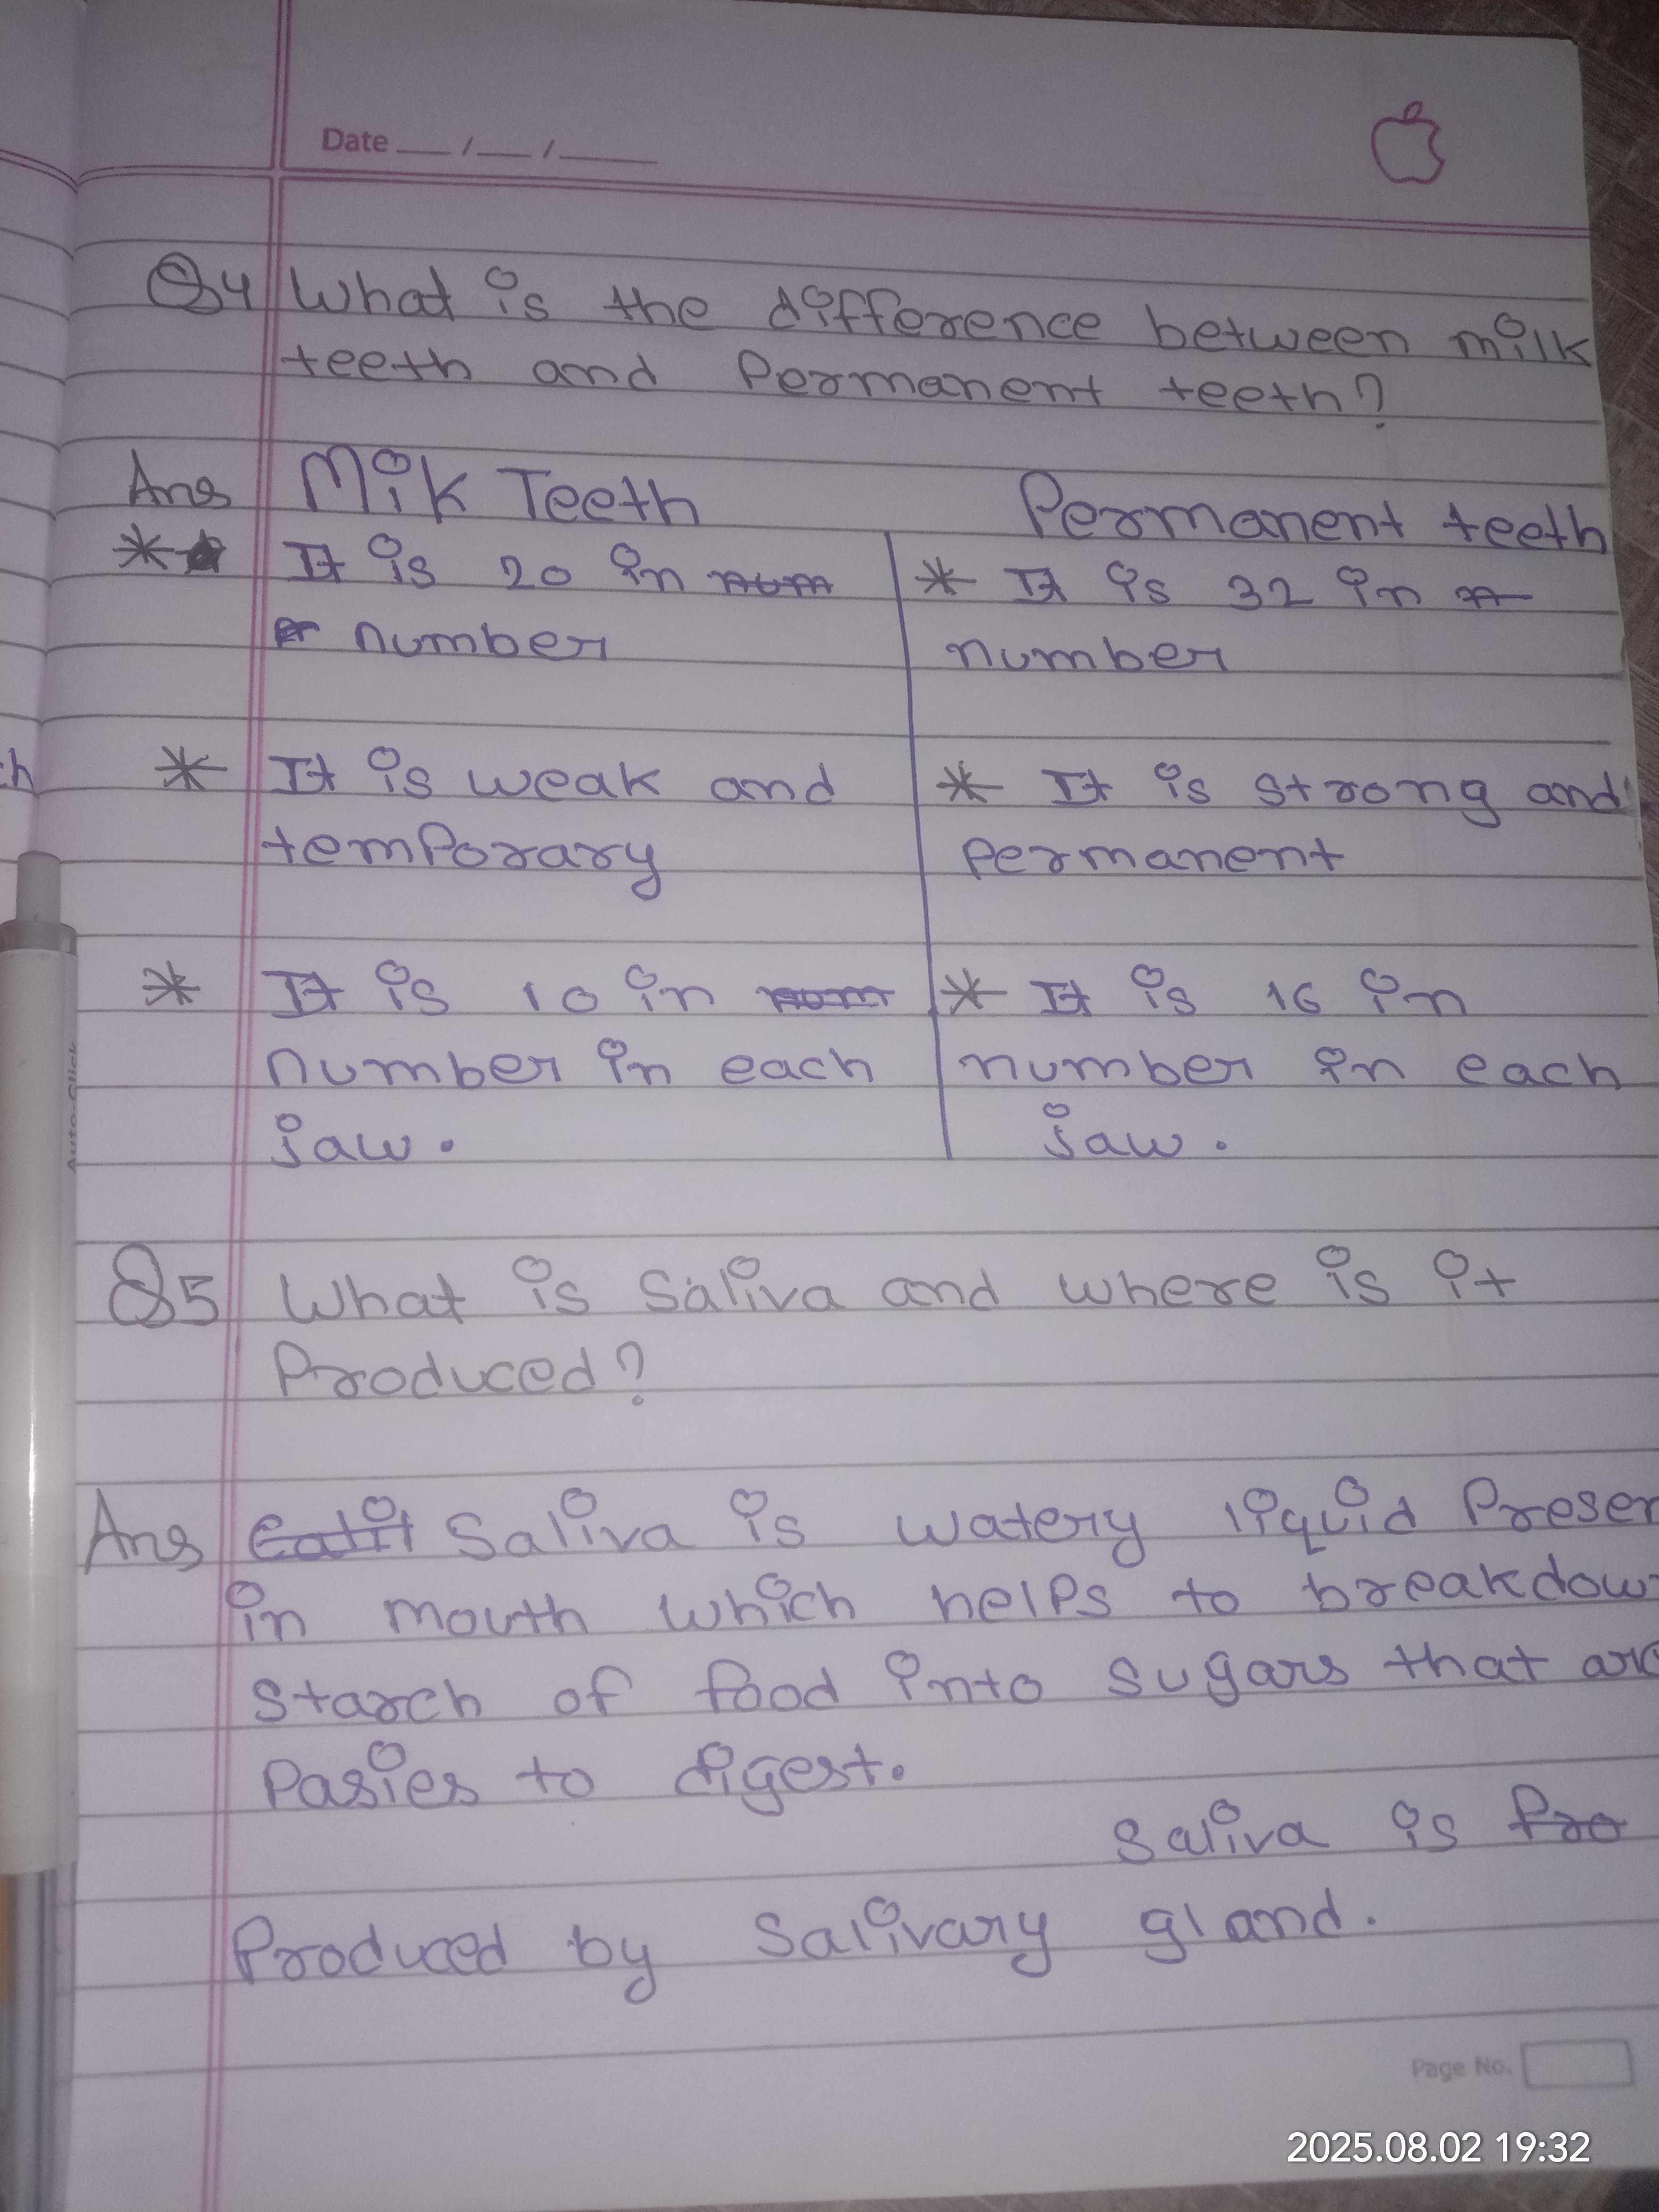 Date __/__/____
Q4 What is the difference between milk
teeth and Permanent teeth?
Ans Mik Teeth Permanent teeth
* It is 20 in * It is 32 in
number number
* It is weak and * It is strong and
temPorary Permanent
* It is 10 in * It is 16 in
number in each number in each
jaw. jaw.
Q5 What is Saliva and where is it
Produced?
Ans Saliva is watery liquid Presen
in mouth which helPs to breakdow
starch of food into sugars that are
Pasies to digest.
Saliva is Pro
Produced by Salivary gland.
Auto-Click
Page No.
2025.08.02 19:32